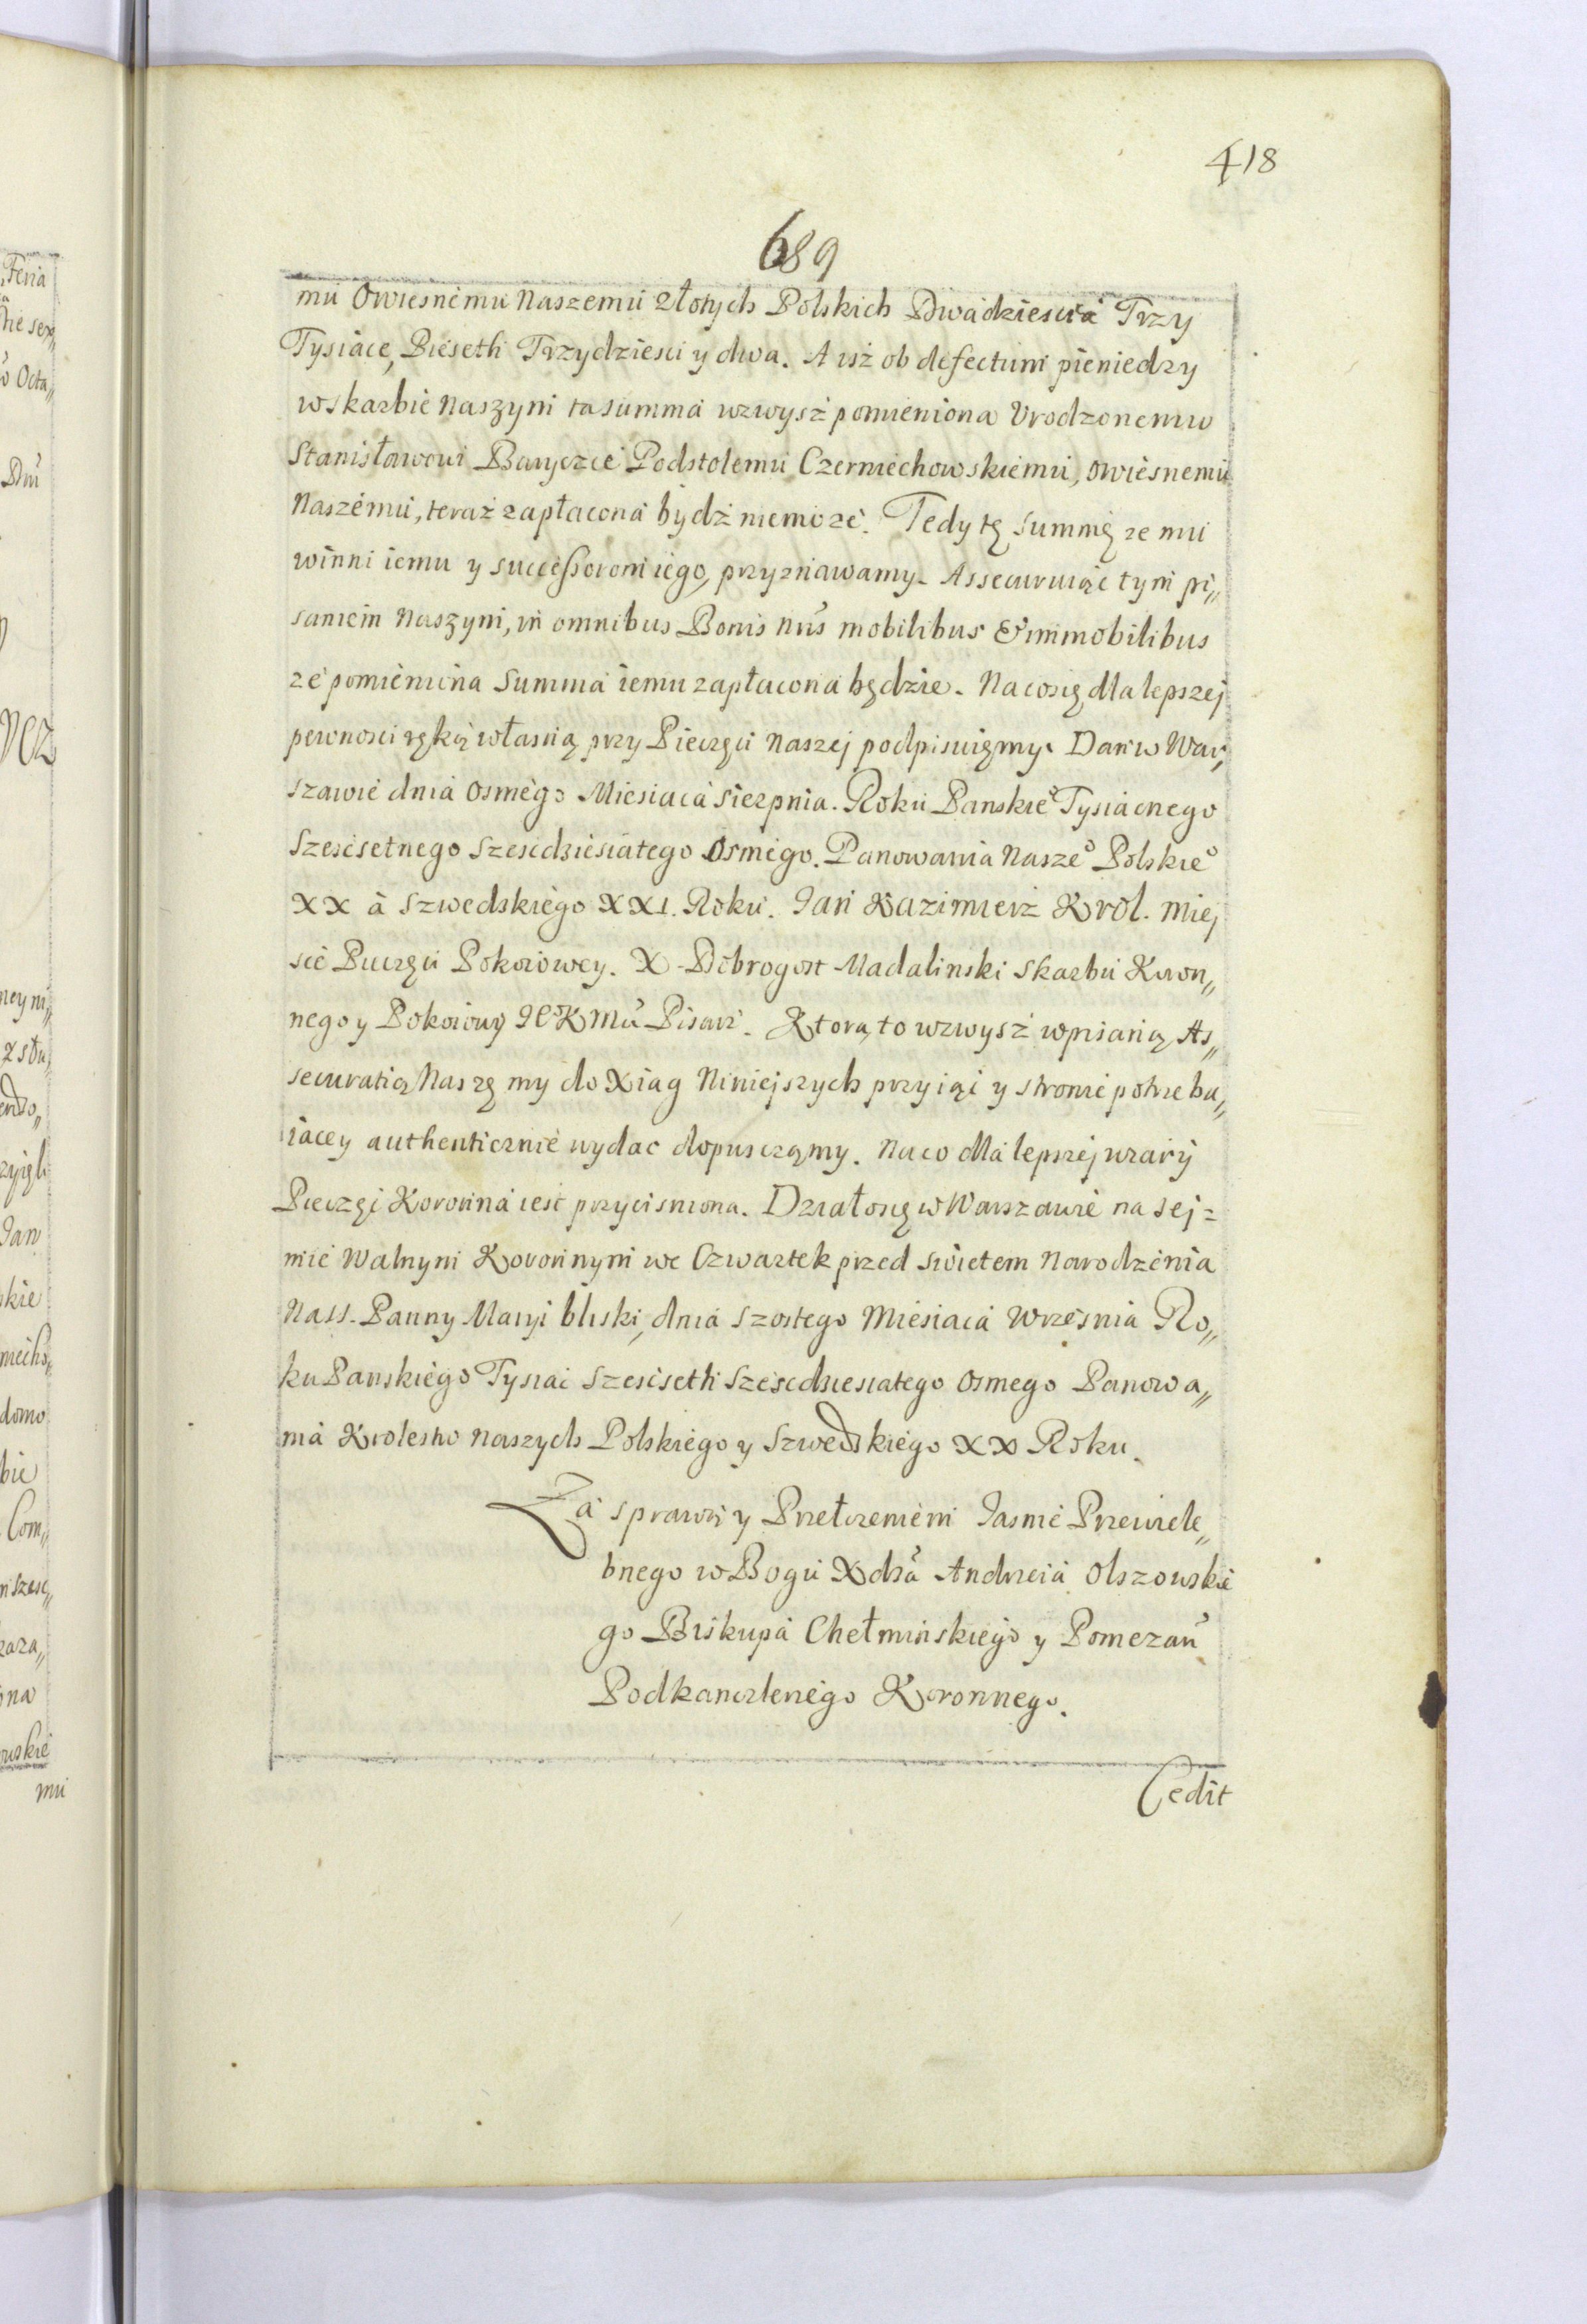 418
689
mu Owiesnemu Naszemu Złotych Polskich Dwadziescia Trzy
Tysiące, Piéseth Trzydziesci y dwa. A isż ob defectum pieniedzy
w skarbie Naszym ta summa wzwysż pomieniona Urodzonemu
Stanisławowi Baryczce Podstolemu Czerniechowskiemu, Owiesnemu
Naszemu, teraż zapłacona bydż niemoże. Tedy tę summę że mu
winni iemu y successorom iego, przyznawamy. Assecuruiąc tym pi„
saniem Naszym, in omnibus Bonis nris mobilibus & immobilibus
że pomieniona Summa iemu zapłacona będzie. Na co się dla lepszej
pewnosci ręką własną przy Pieczęci Naszej podpisuięmy. Dan w War„
szawie dnia Osmego Miesiaca Sierpnia. Roku Panskie° Tysiącnego
Szescsetnego Szescdziesiątego Osmego. Panowania Nasze° Polskie°
XX à Szwedskiego XXI. Roku. Jan Kazimierz Krol. Miej
sce Pieczęci Pokoiowey. X Dobrogost Madalinski Skarbu Koron„
nego y Pokoiowy JeKMci Pisarz. Ktorą to wzwysż wpisaną As„
securatią Naszę my do Xiąg Niniejszych przyiąć y stronie potrzebu„
iącey authenticznie wydac dopusczamy. Na co dla lepszej wiary
Pieczęć Koronna iest przycisniona. Działo się w Warszawie na Sej=
mie Walnym Koronnym we Czwartek przed Swietem Narodzenia
Nass. Panny Maryi bliski, dnia Szostego Miesiaca Wrzesnia Ro„
ku Panskiego Tysiac Szescseth Szescdziesiatego Osmego Panowa„
nia Krolestw Naszych Polskiego y Szwedskiego XX Roku.
Za sprawą y Przełożeniem Jasnie Przewiele„
bnego w Bogu Xdza Andrzeia Olszowskie
go Biskupa Chełminskiego y Pomezan
Podkanclerzego Koronnego.
Cedit